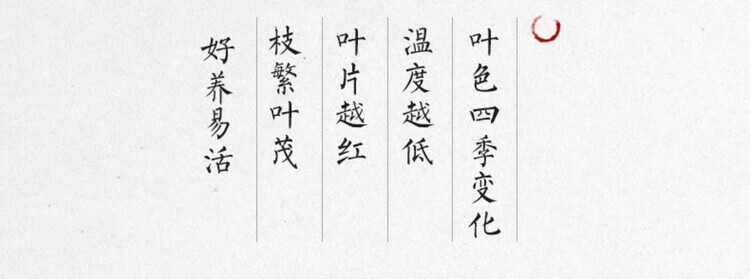 叶色四季变化
温度越低
叶片越红
枝繁叶茂
好养易活